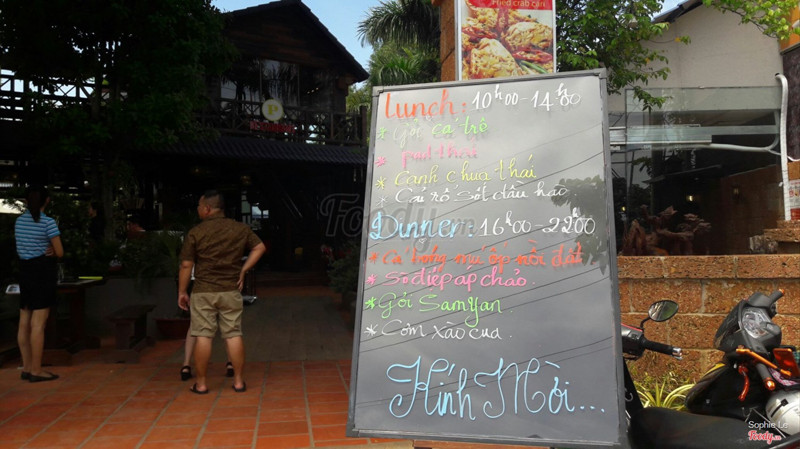 Fried crab can
Lunch: 10h00-14h00
* Gỏi cá trê
* pad thái
* Canh chua thái
* Cải rổ sốt dầu hào
Dinner: 16h00-22h00
* Cá trứng mũi
* Sò điệp áp chảo
* Gỏi Samyan
* Cơm xào cua
Kính Mời...
Foody.vn
Sophie Le
Foody.vn